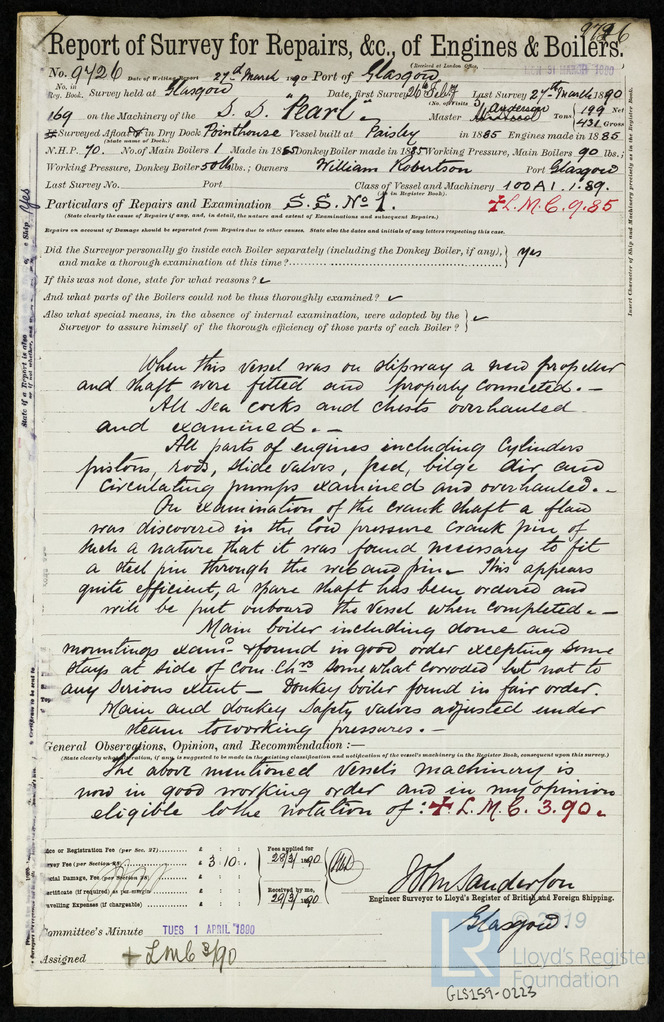 9726
Report of Survey for Repairs, &c., of Engines & Boilers.
(Received at London Office, MON 31 MARCH 1890
No. 9726 Date of Writing Report 27th March 1890 Port of Glasgow
No. in Reg. Book. Survey held at Glasgow Date, first Survey 26th Feby Last Survey 27th March 1890
(No. of Visits 3)
169 on the Machinery of the S. S. "Pearl" Master Anderson Tons 199 Net 431 Gross
Surveyed Afloat or in Dry Dock Pointhouse Vessel built at Paisley in 1885 Engines made in 1885
(State name of Dock.)
N.H.P. 70. No. of Main Boilers 1 Made in 1885 Donkey Boiler made in 1885 Working Pressure, Main Boilers 90 lbs.;
Working Pressure, Donkey Boiler 50 lbs.; Owners William Robertson Port Glasgow
Last Survey No. Port Class of Vessel and Machinery 100A1. 1.89.
(As in Register Book.)
Particulars of Repairs and Examination S.S. No 1. ✠L.M.C. 9.85
(State clearly the cause of Repairs if any, and, in detail, the nature and extent of Examinations and subsequent Repairs.)
Repairs on account of Damage should be separated from Repairs due to other causes. State also the dates and initials of any letters respecting this case.
Did the Surveyor personally go inside each Boiler separately (including the Donkey Boiler, if any),
and make a thorough examination at this time? yes
If this was not done, state for what reasons? ✓
And what parts of the Boilers could not be thus thoroughly examined? ✓
Also what special means, in the absence of internal examination, were adopted by the
Surveyor to assure himself of the thorough efficiency of those parts of each Boiler? ✓
When this vessel was on slipway a new propeller
and shaft were fitted and properly connected. —
All Sea cocks and chests overhauled
and examined. —
All parts of engines including Cylinders
pistons, rods, slide valves, feed, bilge air and
Circulating pumps examined and overhauled. —
On examination of the crank shaft a flaw
was discovered in the low pressure crank pin of
such a nature that it was found necessary to fit
a steel pin through the web and pin. This appears
quite efficient, a spare shaft has been ordered and
will be put onboard the vessel when completed. —
Main boiler including dome and
mountings examd & found in good order excepting some
stays at side of Com. Chrs somewhat corroded but not to
any serious extent — Donkey boiler found in fair order.
Main and donkey Safety valves adjusted under
steam to working pressures. —
General Observations, Opinion, and Recommendation :—
(State clearly what alteration, if any, is suggested to be made in the existing classification and notification of the vessel's machinery in the Register Book, consequent upon this survey.)
The above mentioned Vessels machinery is
now in good working order and in my opinion
eligible to the notation of : ✠ L.M.C. 3.90.
Office or Registration Fee (per Sec. 27) £ : :
Survey Fee (per Section 28) £ 3 . 10 :
Special Damage, Fee (per Section 28) £ : :
Certificate (if required) as per margin £ : :
Travelling Expenses (if chargeable) £ : :
Fees applied for 28/3/1890
Received by me, 29/3/1890
John Sanderson
Engineer Surveyor to Lloyd's Register of British and Foreign Shipping.
Glasgow.
Committee's Minute TUES 1 APRIL 1890
Assigned + LMC 3/90
Insert Character of Ship and Machinery precisely as in the Register Book.
© 2019
LR Lloyd's Register Foundation
GLS159-0223